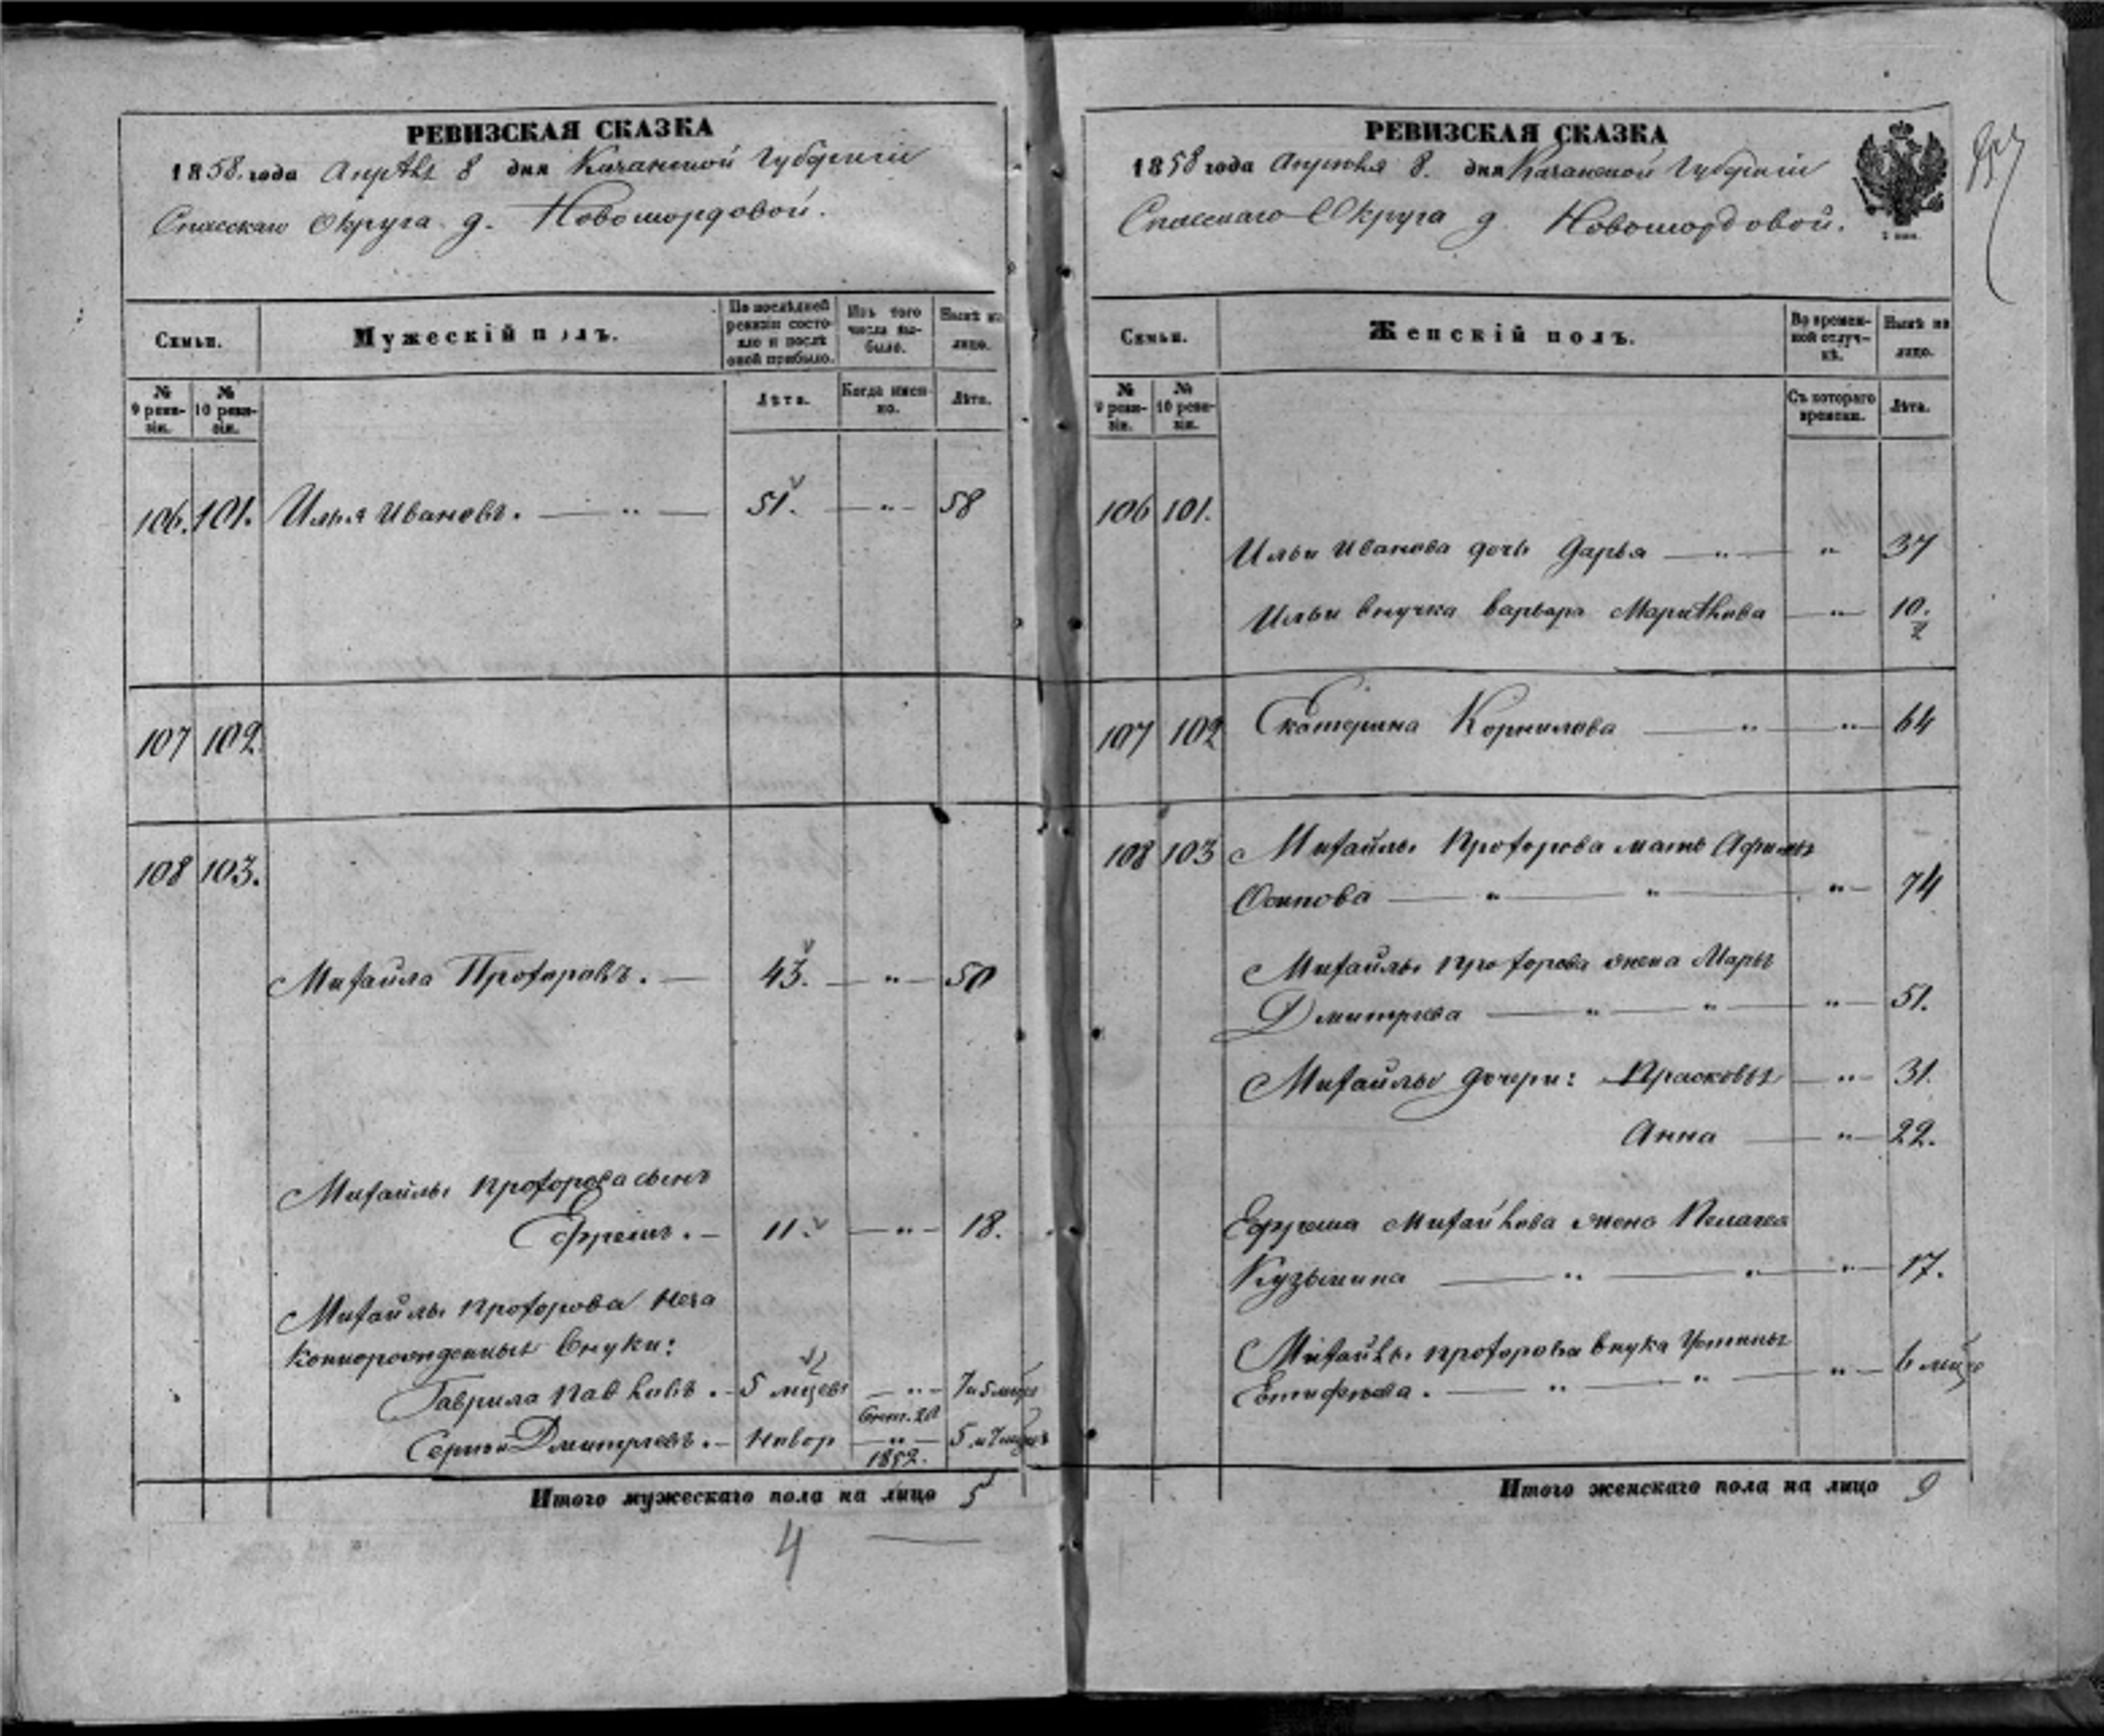 РЕВИЗСКАЯ СКАЗКА
1858. года Апрѣля 8 дня Казанской Губерніи
Спасскаго Округа д. Новомордовой.
Семьи.
Мужескій полъ.
По послѣдней ревизіи состояло и послѣ оной прибыло.
Изъ того числа выбыло.
Нынѣ на лицо.
№ 9 ревизіи.
№ 10 ревизіи.
Лѣта.
Когда именно.
Лѣта.
106. 101. Илья Ивановъ. — „ — 51. — „ — 58
107 102
108 103.
Михайла Прохоровъ. — 43. — „ — 50
Михайлы Прохорова сынъ
Ефремъ. — 11. — „ — 18.
Михайлы Прохорова неза
коннорожденные внуки:
Гаврила Павловъ. — 5 мцевъ — „ — 7 и 5 мцъ
Сергей Дмитріевъ. — Новор — „ — 5 и 7 мцевъ
1852.
Итого мужескаго пола на лицо 5
4
РЕВИЗСКАЯ СКАЗКА
1858 года Апрѣля 8. дня Казанской Губерніи
Спасскаго Округа д Новомордовой.
Семьи.
Женскій полъ.
Во временной отлучкѣ.
Нынѣ на лицо.
№ 9 ревизіи.
№ 10 ревизіи.
Съ котораго времени.
Лѣта.
106 101.
Ильи Иванова дочь Дарья — „ — „ 37
Ильи внучка Варвара — „ — 10.
107 102 Екатерина Корнилова — „ — „ — 64
108 103 Михайлы Прохорова мать
Осипова — „ — „ — „ — 74
Михайлы Прохорова жена Марья
Дмитріева — „ — „ — „ — 51.
Михайлы дочери: Прасковья — „ — 31.
Анна — „ — 22.
Ефрема Михайлова жена Пелагея
Кузьмина — „ — „ — „ — 17.
Михайлы Прохорова внука Устинья
Епифанова. — „ — „ — „ — 6 мцъ
Итого женскаго пола на лицо 9